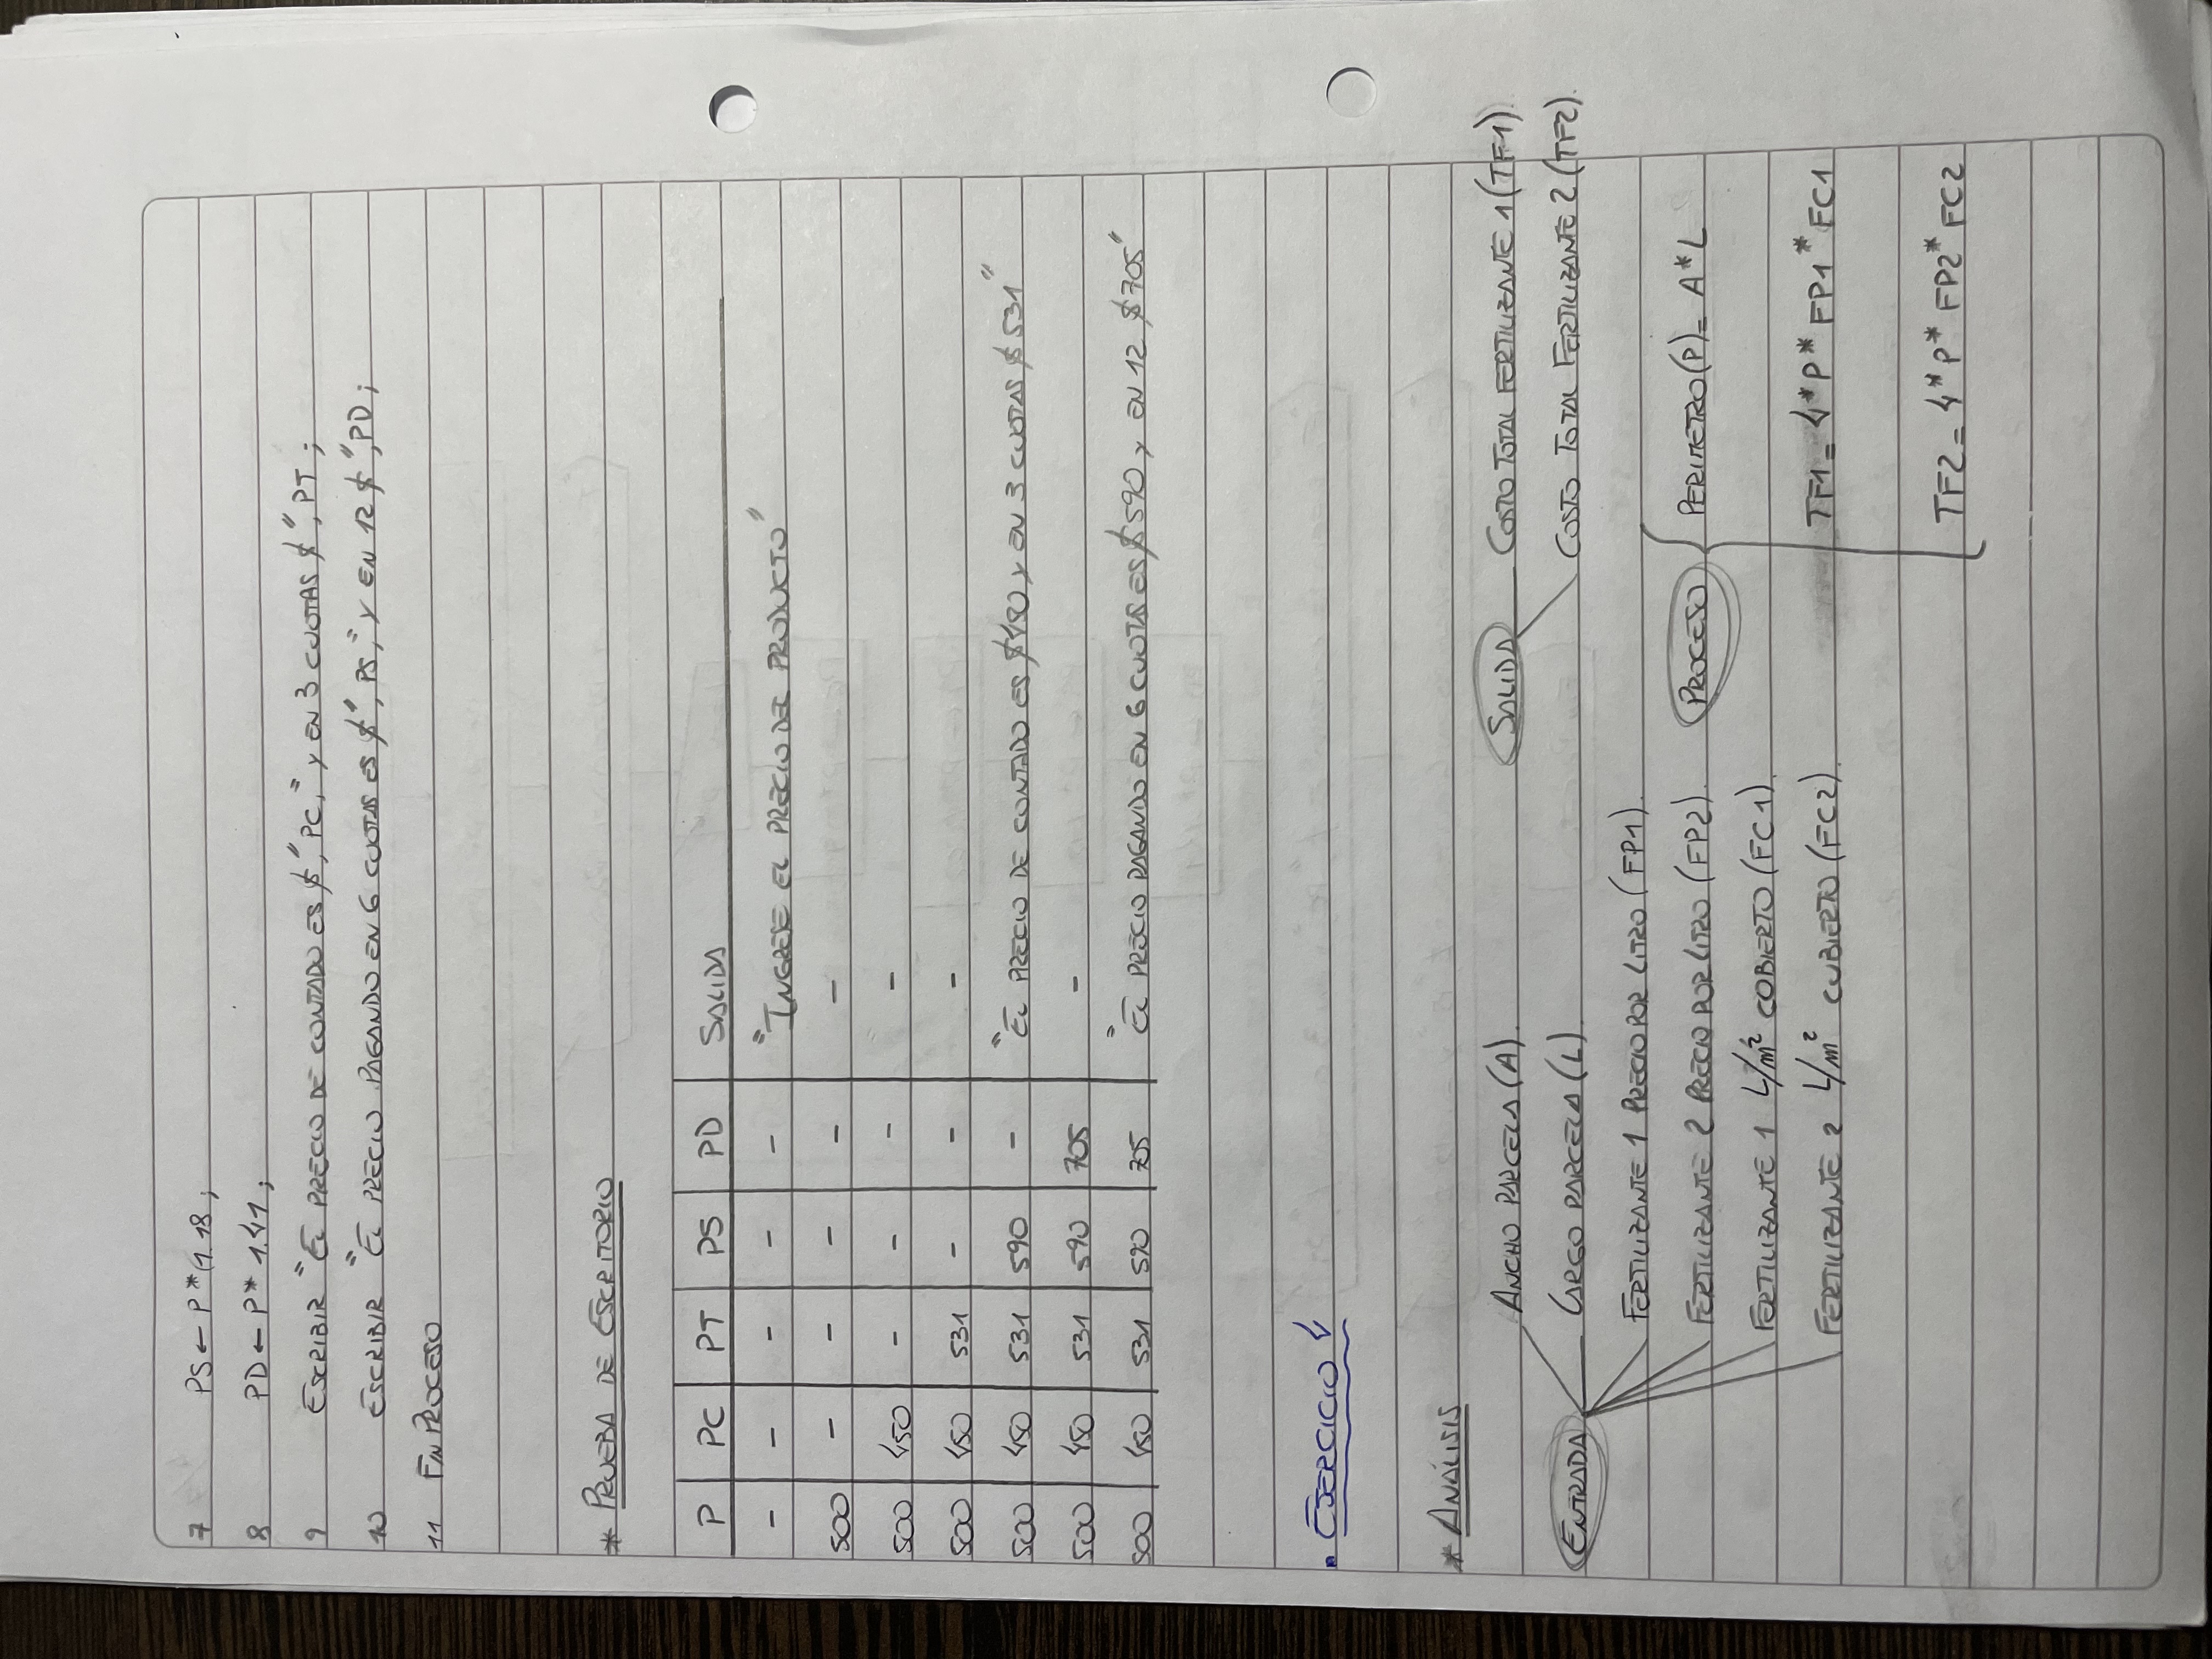 7 PS ← P*(1.18;
8 PD ← P* 1.41;
9 ESCRIBIR "EL PRECIO DE CONTADO ES $", PC, " Y EN 3 CUOTAS $", PT;
10 ESCRIBIR "EL PRECIO PAGANDO EN 6 CUOTAS ES $", PS, " Y EN 12 $", PD;
11 FINPROCESO
* PRUEBA DE ESCRITORIO
P PC PT PS PD SALIDA
- - - - - "INGRESE EL PRECIO DEL PRODUCTO"
500 - - - - -
500 450 - - - -
500 450 531 - - -
500 450 531 590 - "EL PRECIO DE CONTADO ES $450 Y EN 3 CUOTAS $531"
500 450 531 590 705 -
500 450 531 590 705 "EL PRECIO PAGANDO EN 6 CUOTAS ES $590, Y EN 12 $705"
. EJERCICIO 4
* ANÁLISIS
ENTRADA
ANCHO PARCELA (A).
LARGO PARCELA (L).
FERTILIZANTE 1 PRECIO POR LITRO (FP1).
FERTILIZANTE 2 PRECIO POR LITRO (FP2).
FERTILIZANTE 1 L/m² COBIERTO (FC1).
FERTILIZANTE 2 L/m² CUBIERTO (FC2).
SALIDA
COSTO TOTAL FERTILIZANTE 1 (TF1).
COSTO TOTAL FERTILIZANTE 2 (TF2).
PROCESO
PERIMETRO (P) = A*L
TF1 = 4*P* FP1* FC1
TF2 = 4*P* FP2* FC2